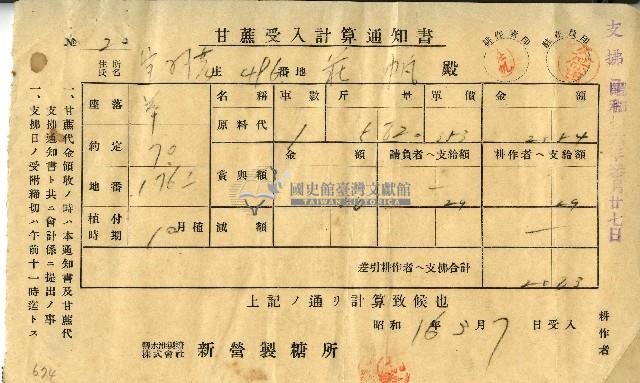 甘蔗受入計算通知書
耕作者印
No. 20
住所
氏名
庄 486 番地 莊帆 殿
座落
名稱 車數 斤量 單價 金額
原料代 1
約定 70
金額 請負者ヘ支給額 耕作者ヘ支給額
地番 1762
貸與額 29 29
植付時期 10月植
減額
差引耕作者ヘ支拂合計
上記ノ通リ計算致候也
昭和 16年 5月 7日受入
鹽水港製糖株式會社 新營製糖所
耕作者
一、甘蔗代金領收ノ時ハ本通知書及甘蔗代
支拂通知書ト共ニ會計係ニ提出ノ事
一、支拂日ノ受附締切ハ午前十一時迄トス
支拂日
昭和
月廿七日
國史館臺灣文獻館
TAIWAN HISTORICA
674